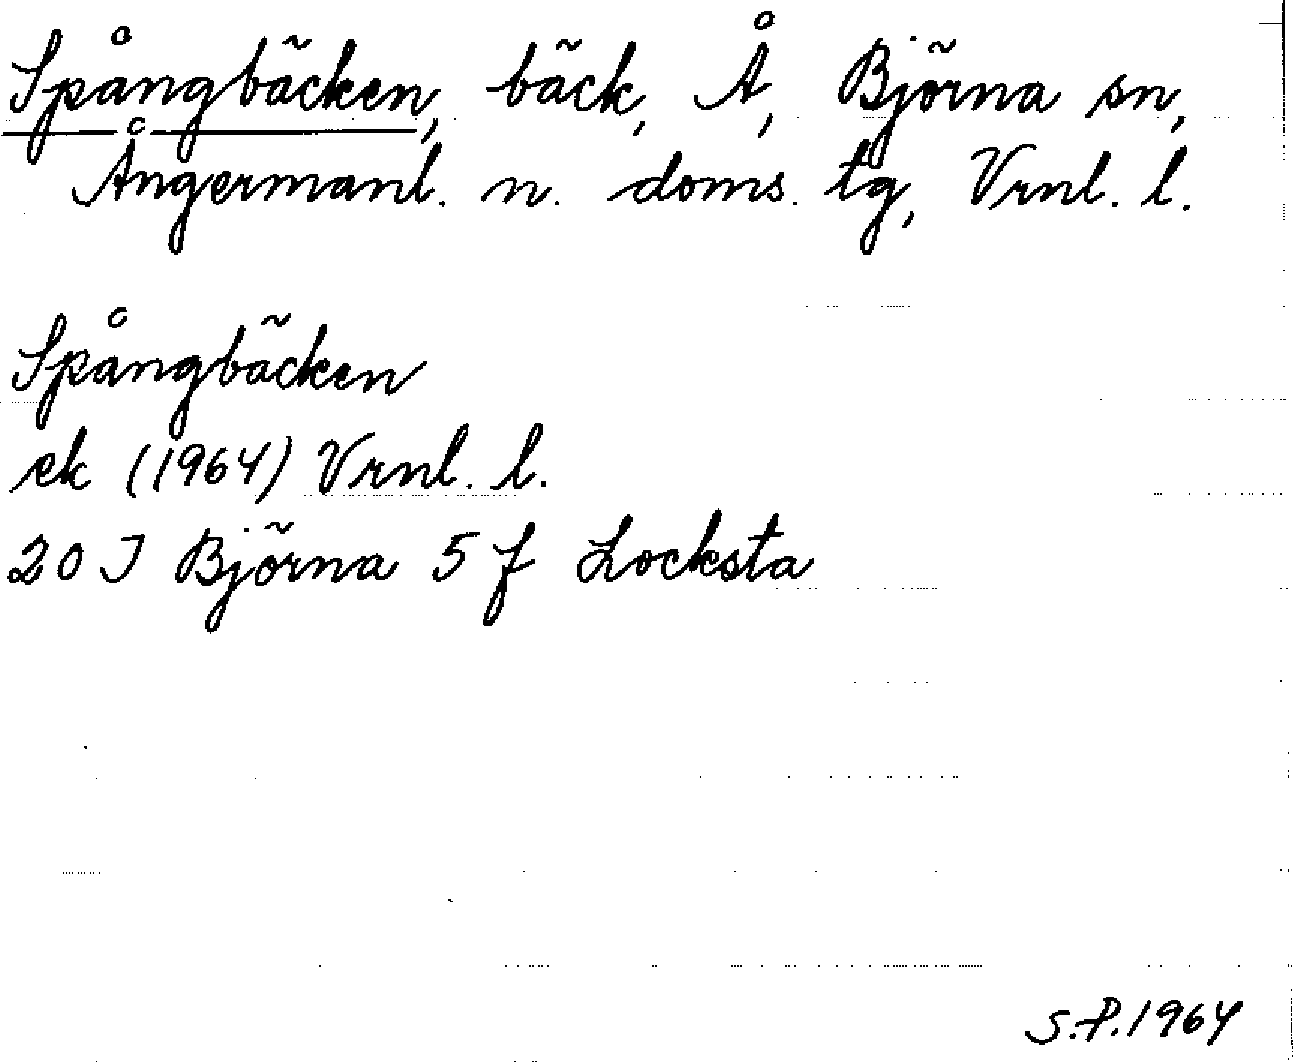 Spångbäcken, bäck, Å, Björna sn,
Ångermanl. n. doms. tg, Vrnl. l.
Spångbäcken
ek (1964) Vrnl. l.
20 J Björna 5 f Locksta
S.P.1964